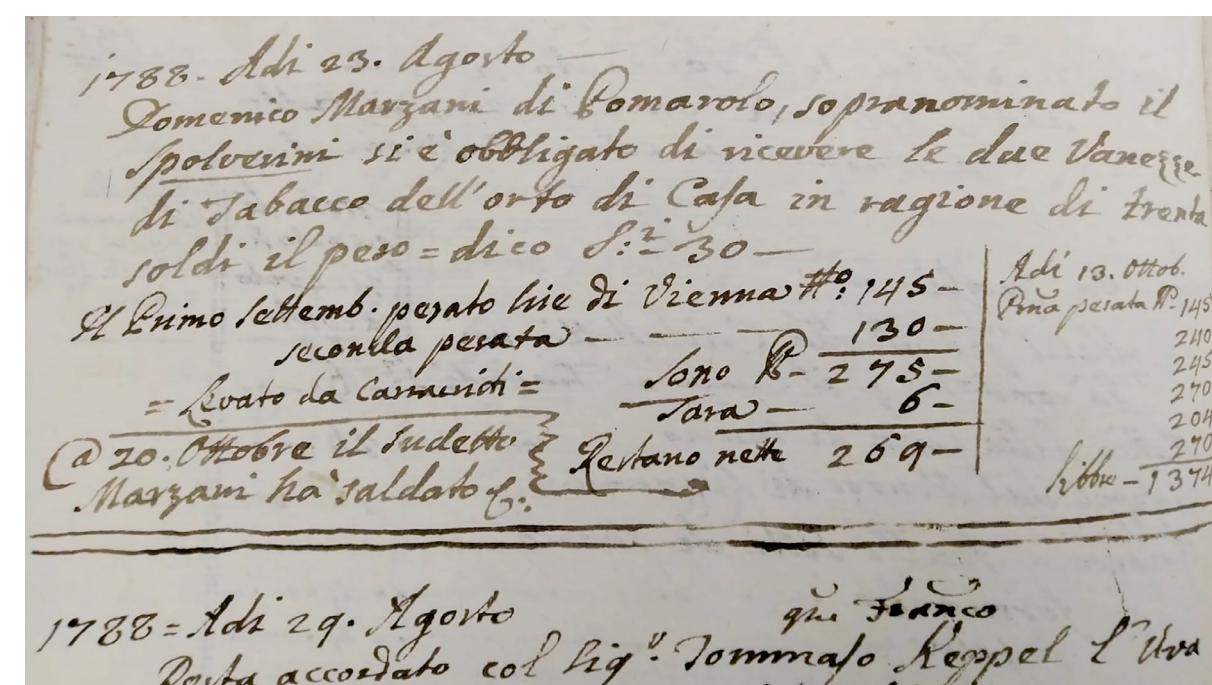 1788. Adi 23. Agosto
Domenico Marzani di Pomarolo, sopranominato il
spolverini si è obbligato di ricevere le due Vanezze
di Tabacco dell'orto di Casa in ragione di trenta
soldi il peso = dico S: 30 —
Il Primo Settemb. pesato hie di Vienna No: 145 —
seconda pesata — — — 130 —
Sono 275 —
= Levato da Carrarioti =
Tara — 6 —
@ 20. Ottobre il Sudetto
Marzani ha saldato
Restano nette 269 —
Adi 13. Ottob.
Pma pesata 145
240
245
270
204
270
Libbre — 1374
1788 = Adi 29. Agosto
qm Franco
Resta accordato col Sigr. Tommaso Keppel l'Uva